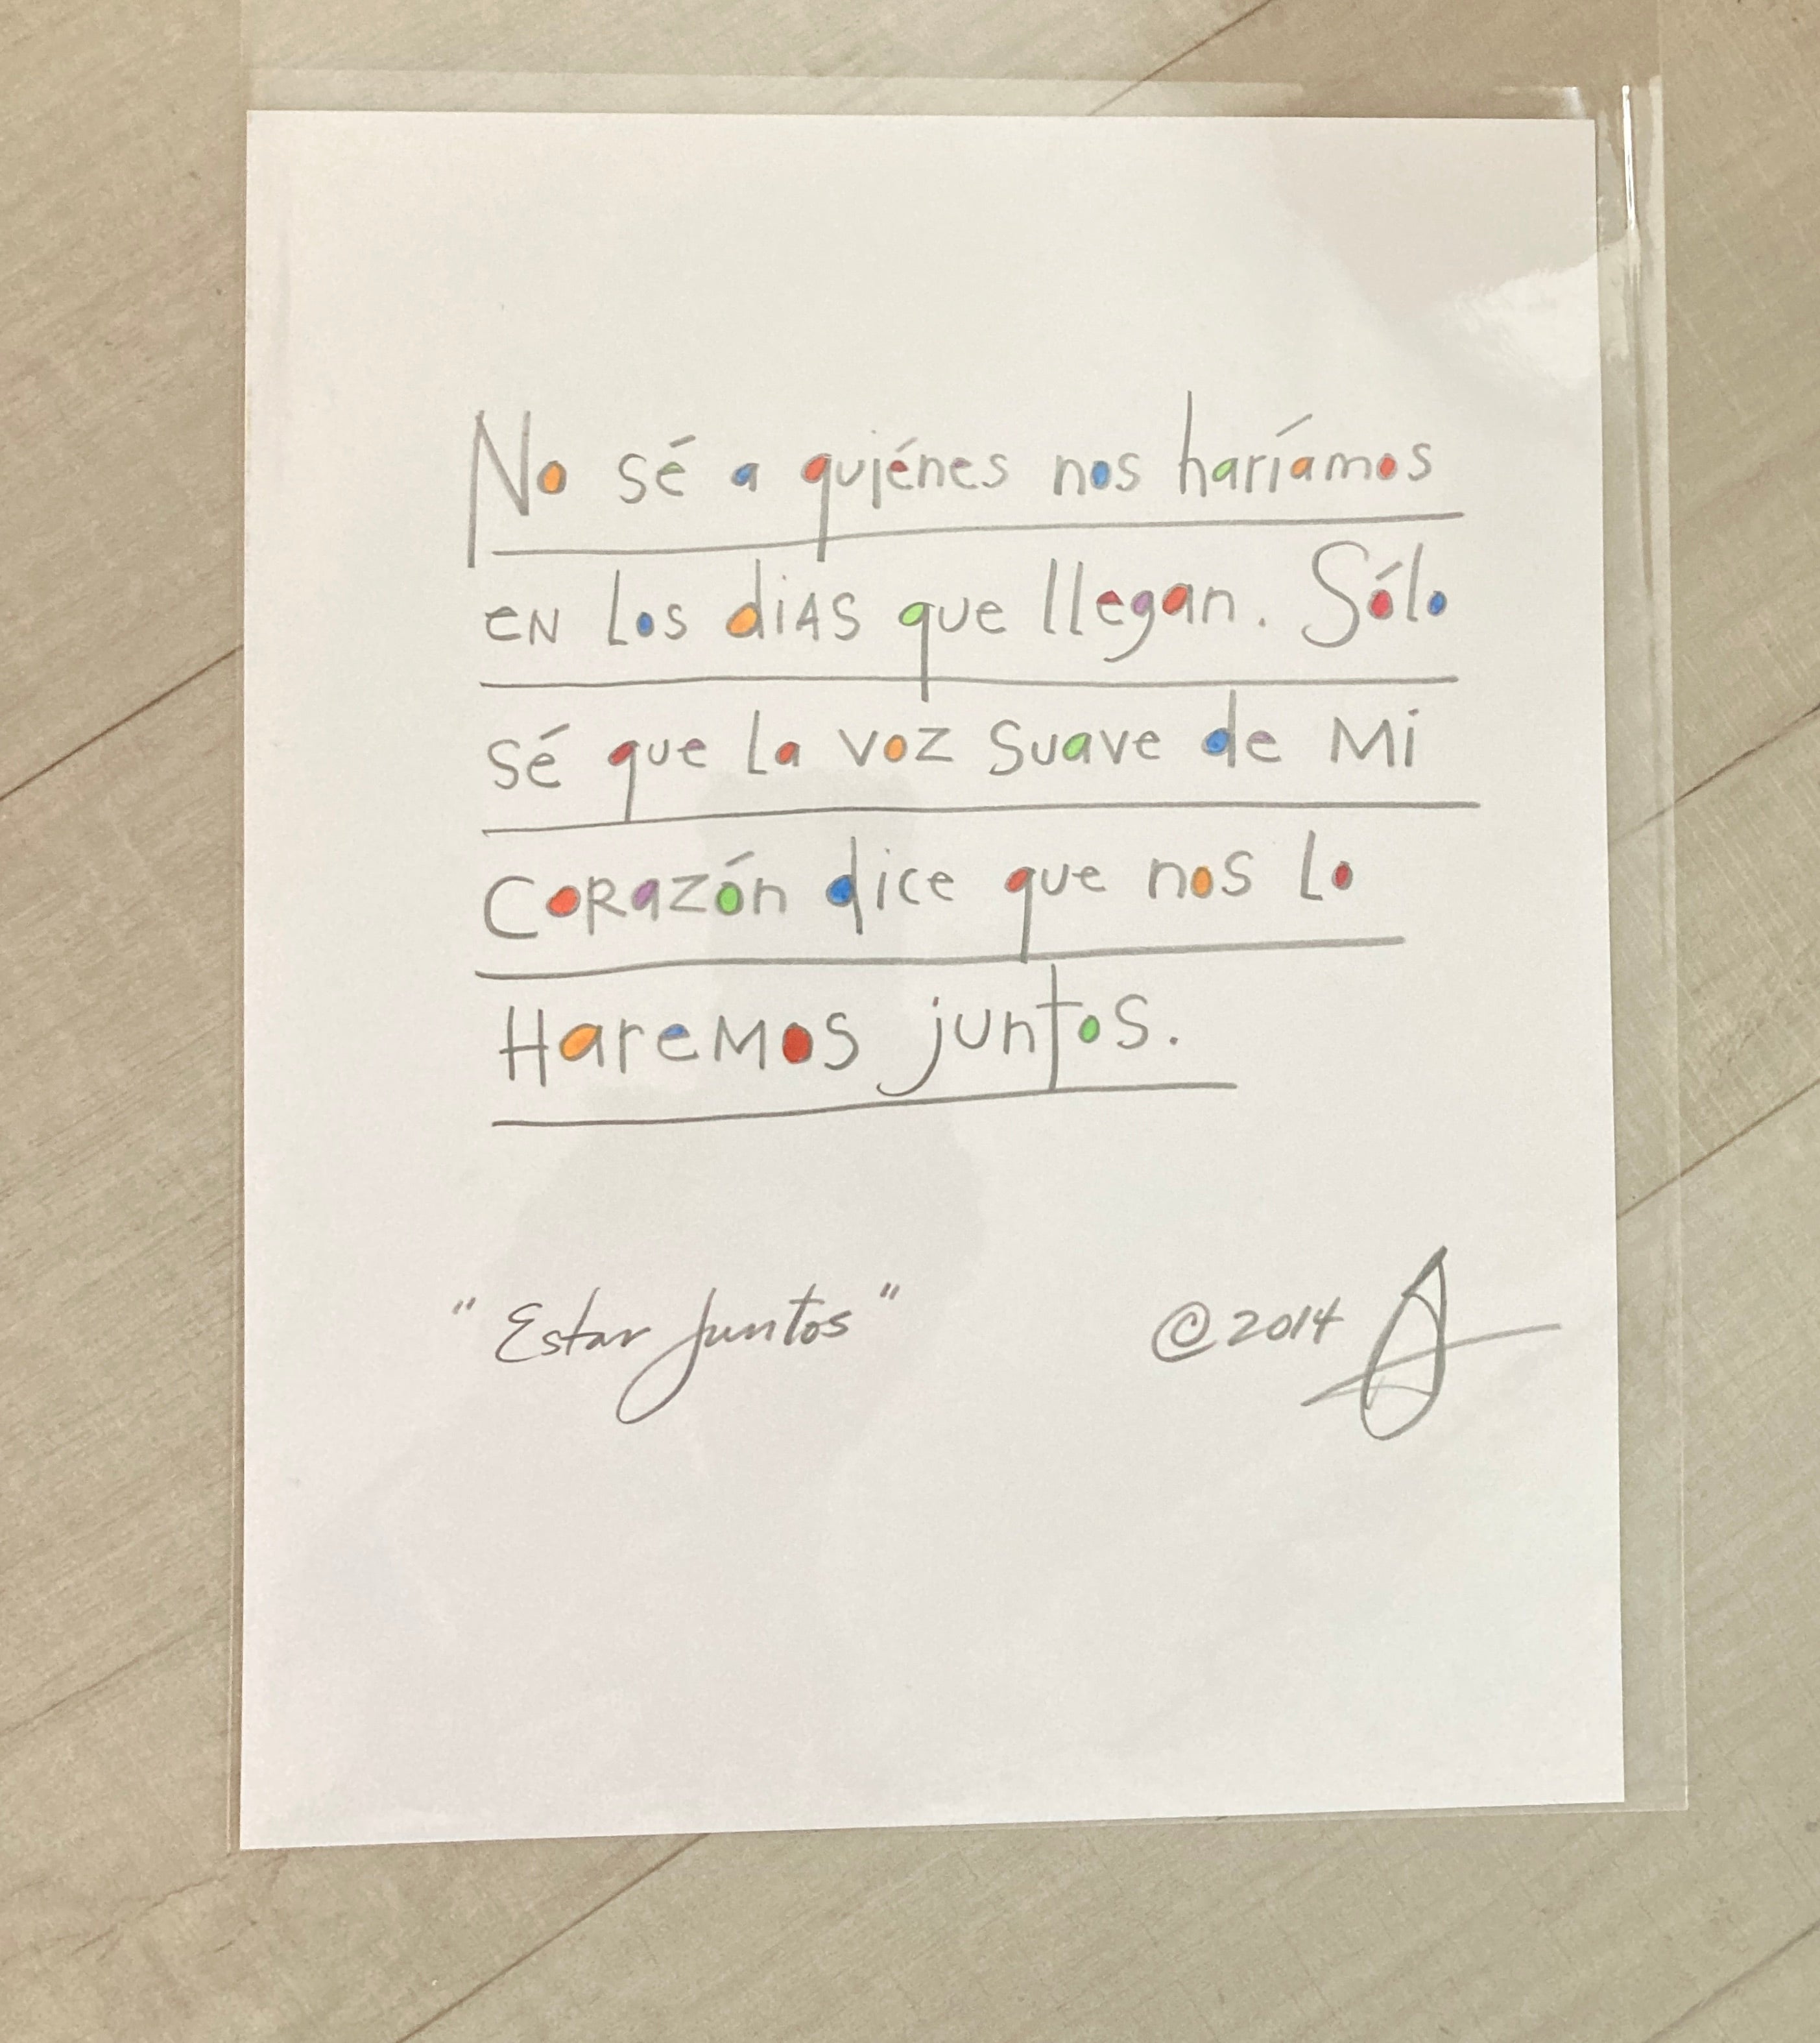 No sé a quiénes nos haríamos
eN Los diAS que llegan. Sólo
sé que La voz suave de Mi
CoRazón dice que nos Lo
HareMos juntos.
"Estar Juntos" ©2014